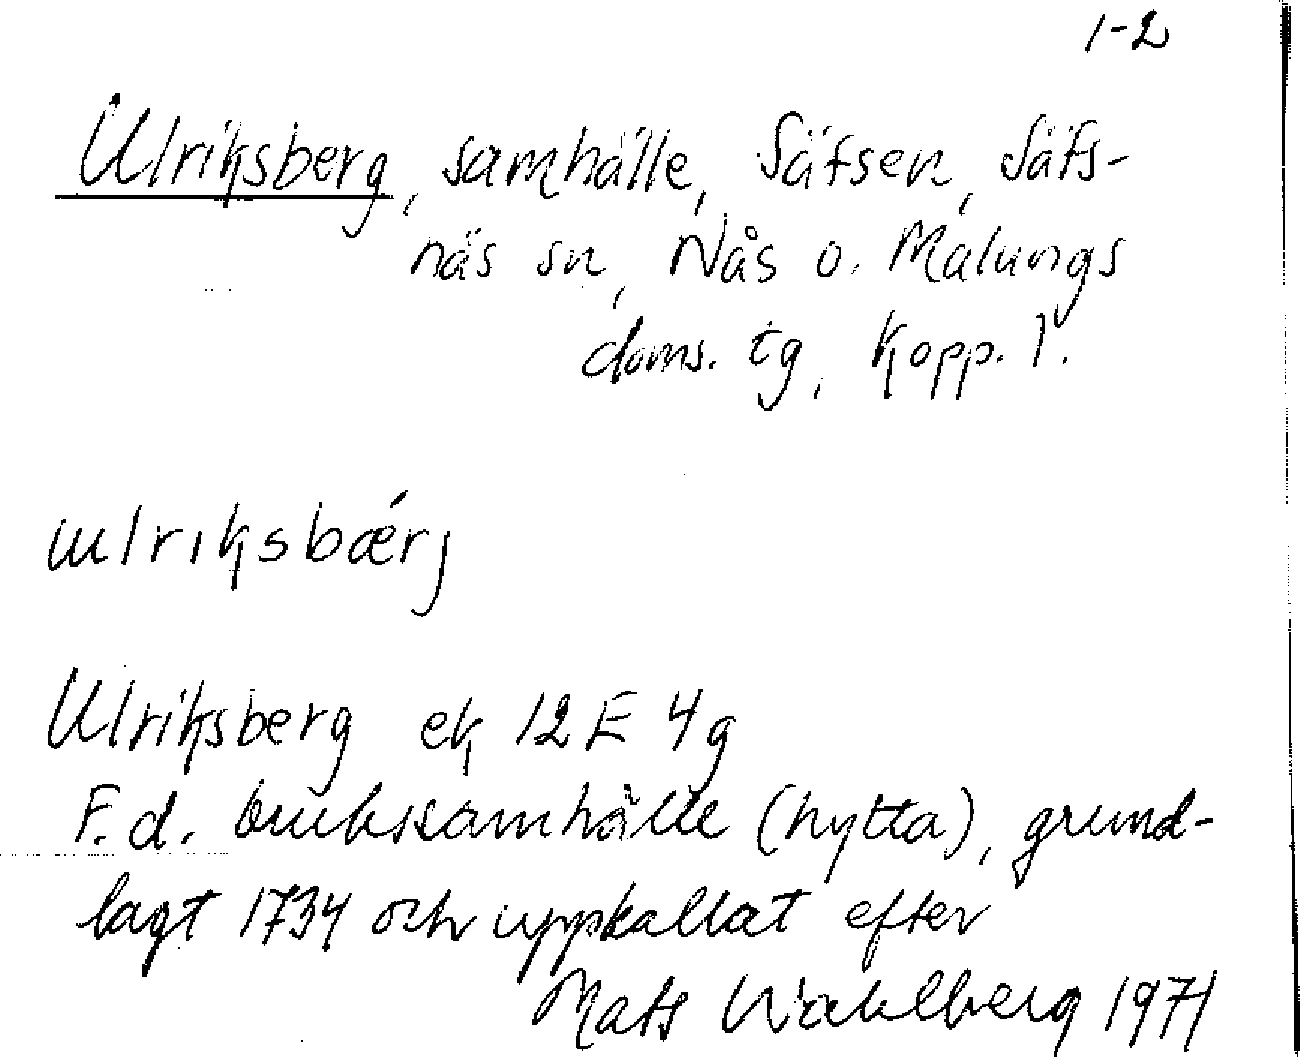 1-2
Ulriksberg, samhälle, Säfsen, Säfs-
näs sn, Nås o. Malungs
doms. tg, Kopp. l.
ɯlriksbǽrj
Ulriksberg ek 12E 4g
F.d. brukssamhälle (hytta), grund-
lagt 1734 och uppkallat efter
Mats Wahlberg 1971